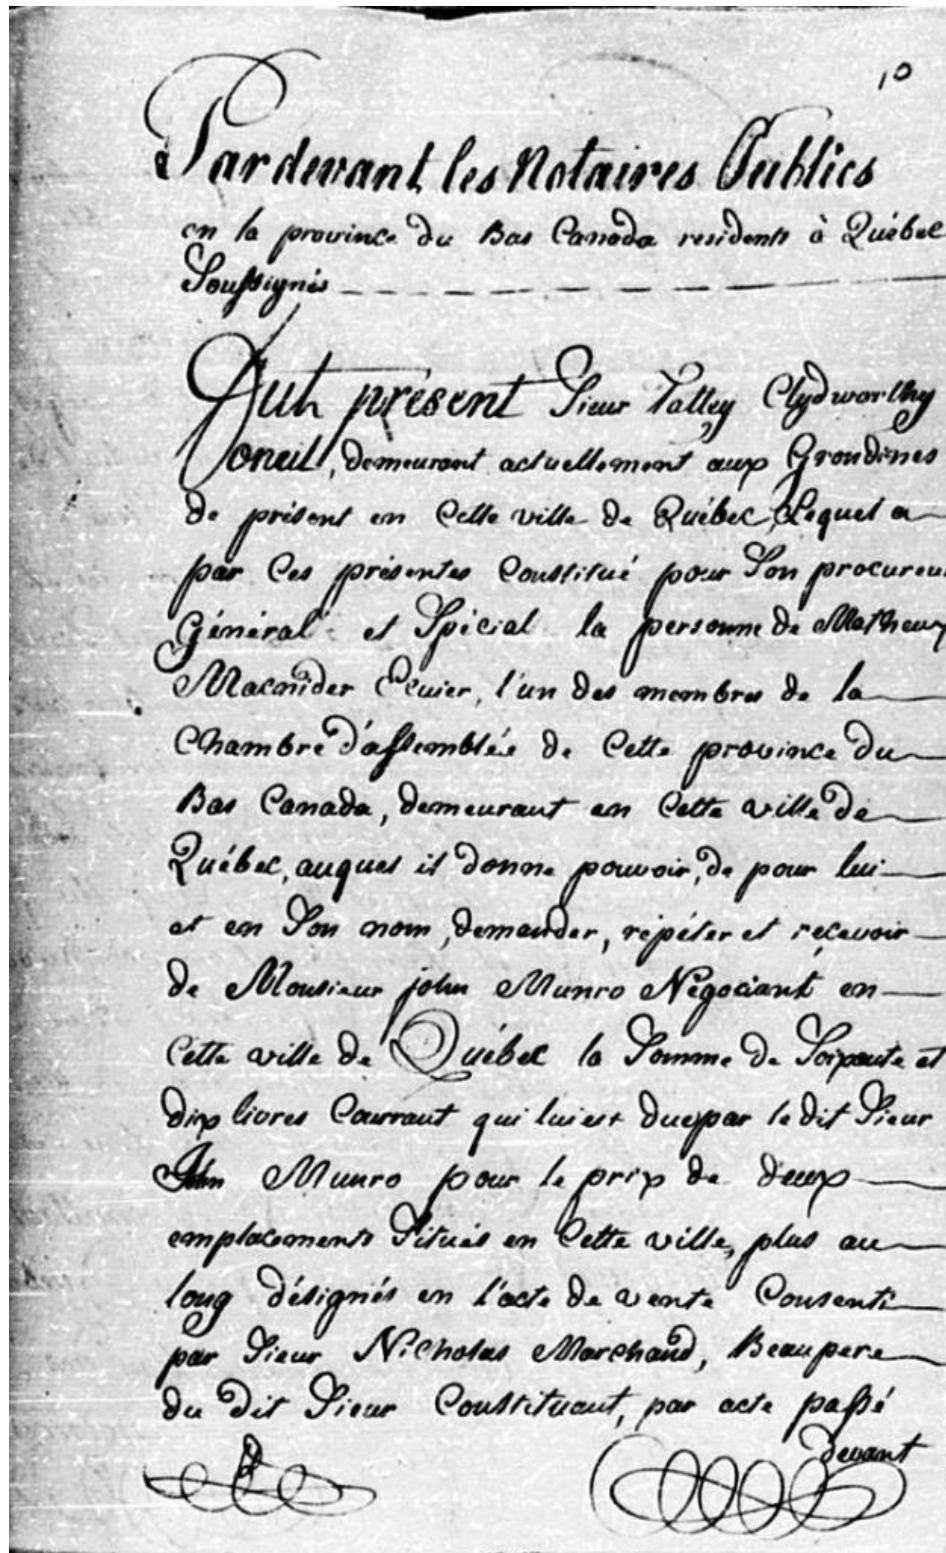 10
Pardevant les Notaires Publics
en la province du Bas Canada residents à Québec
Soussignés
Fut présent Sieur Valley Clydworthy
oneil, demeurant actuellement aux Grondines
de présent en Cette ville de Québec, Lequel a
par Ces présentes Constitué pour Son procureur
Général et Spécial la personne de Matheux
Macnider Ecuier, l'un des membres de la
Chambre d'assemblée de Cette province du
Bas Canada, demeurant en Cette ville de
Québec, auquel il donne pouvoir, de pour lui
et en Son nom, demander, répéter et recevoir
de Monsieur john Munro Négociant en
Cette ville de Québec la Somme de Soixante et
dix livres Courrant qui lui est due par le dit Sieur
John Munro pour le prix de deux
emplacements Situés en Cette ville, plus au
long désignés en l'acte de vente Consenti
par Sieur Nicholas Marchand, Beaupere
du dit Sieur Constituant, par acte passé
devant